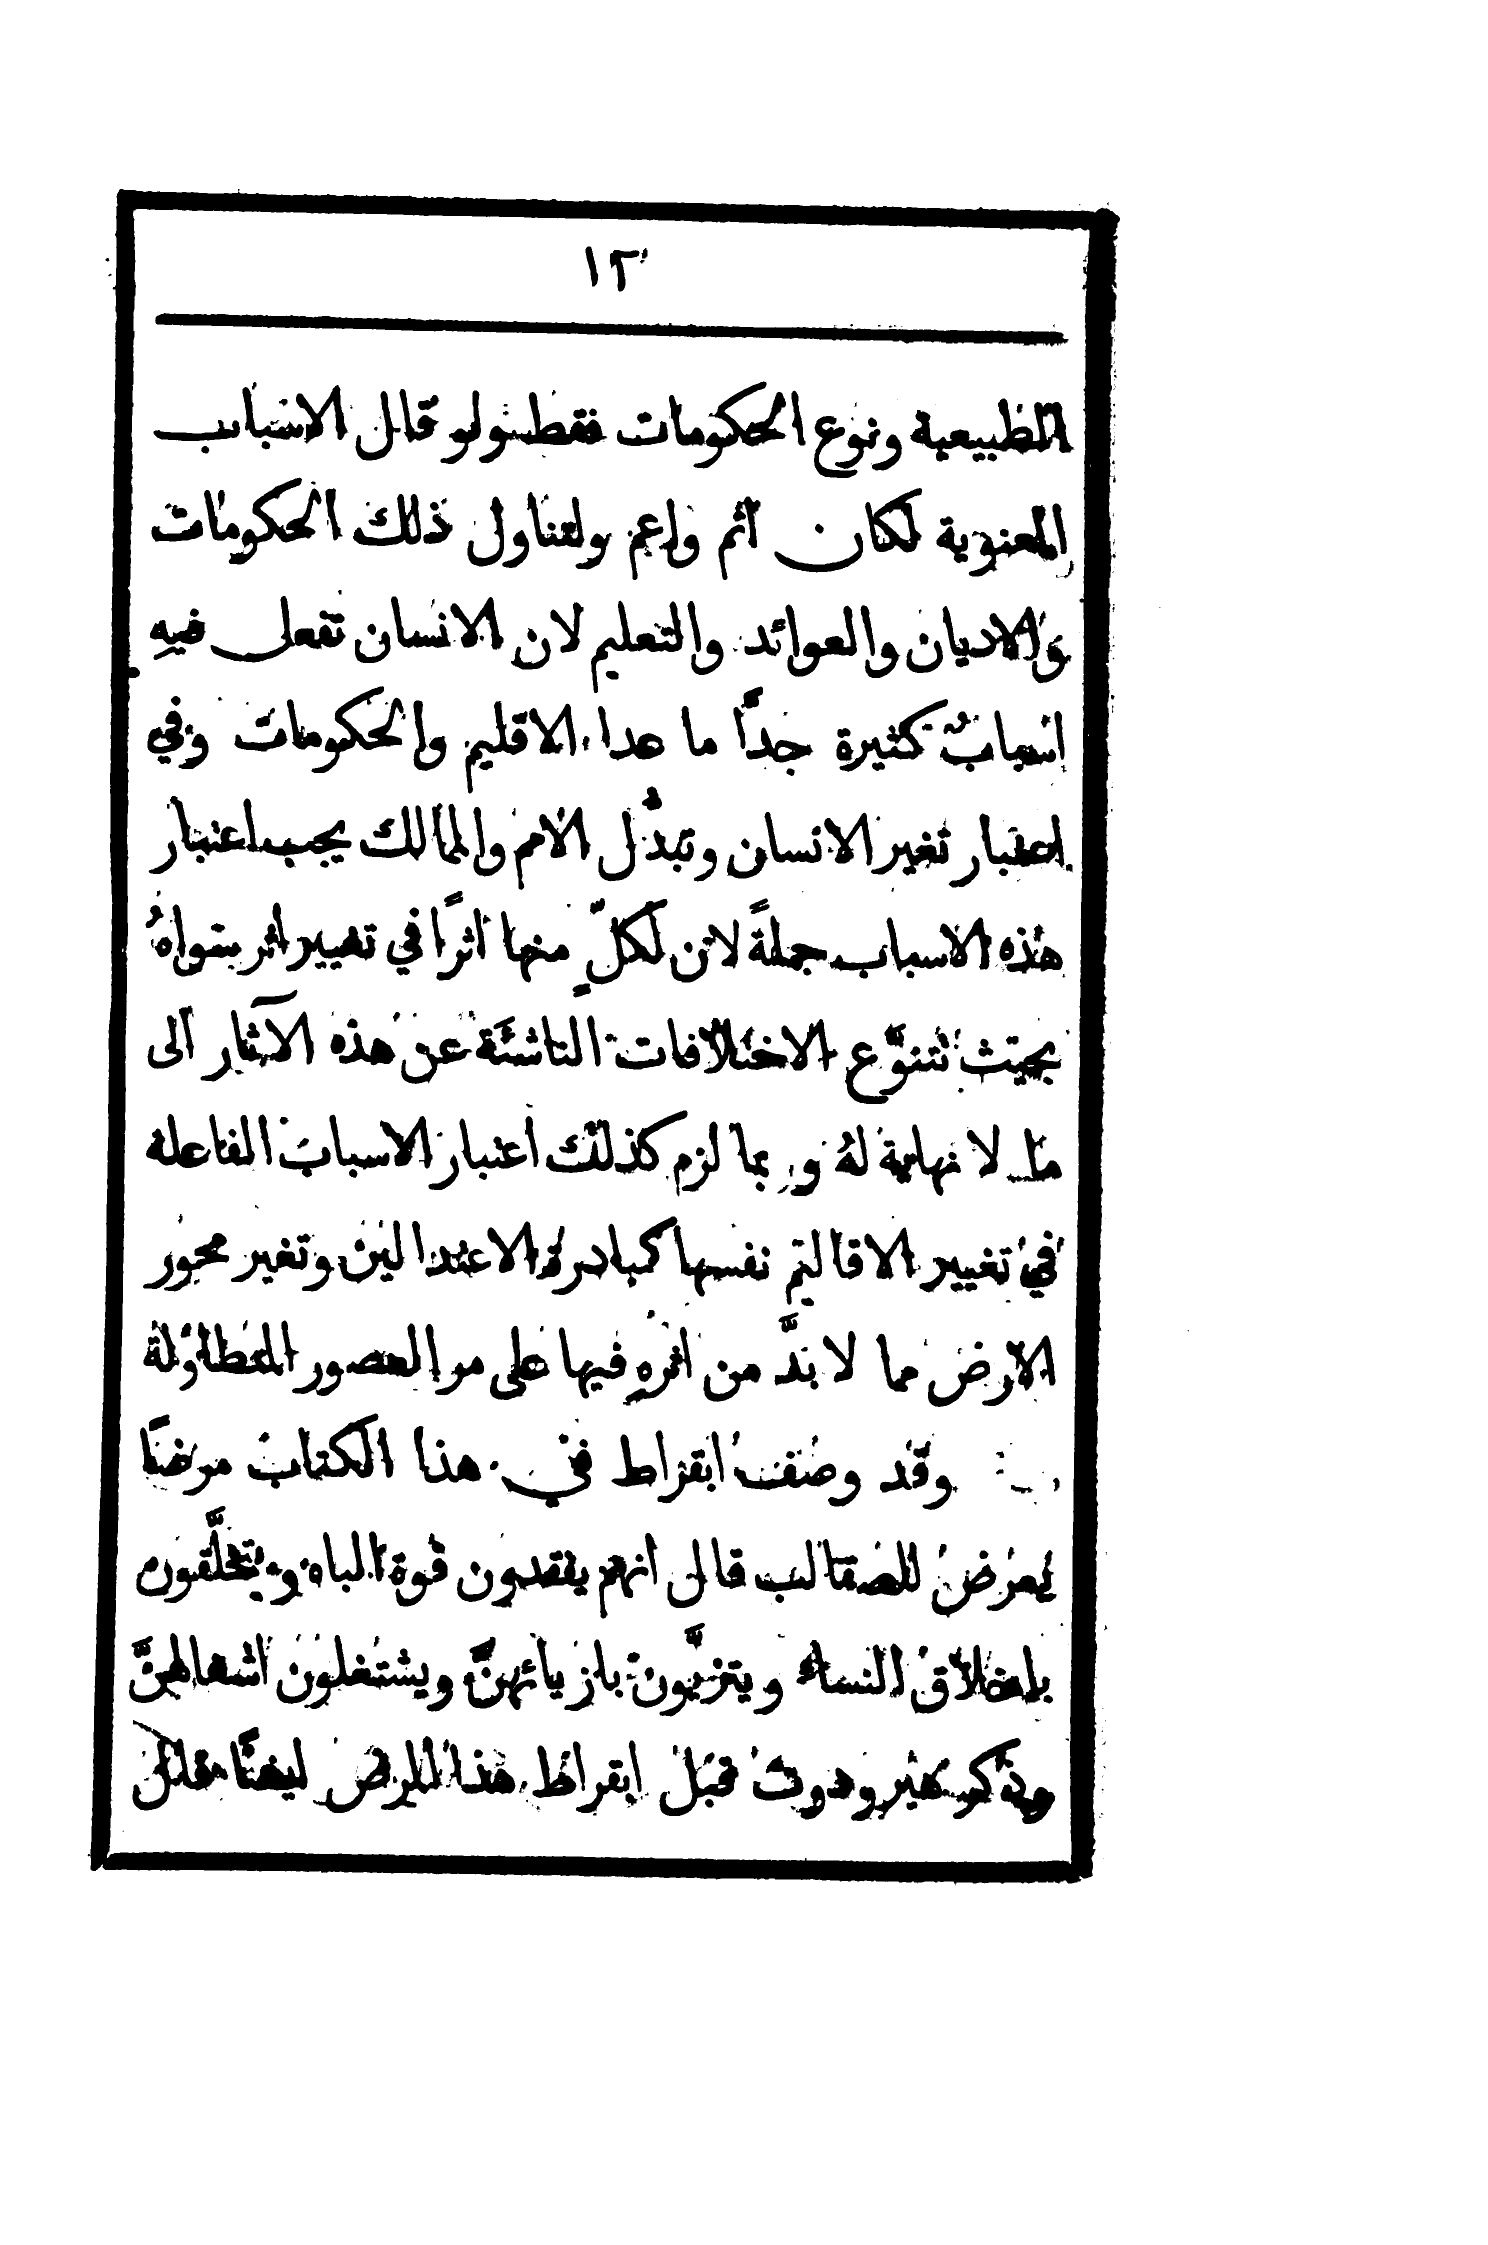 ١٢
الطبيعية ونوع الحكومات فقط ولو قال الاسباب
المعنوية لكان اتم واعم ولتناول ذلك الحكومات
والاديان والعوائد والتعليم لان الانسان تفعل فيهِ
اسبابٌ كثيرة جدًّا ما عدا الاقليم والحكومات وفي
اعتبار تغير الانسان وتبدُّل الامم والممالك يجب اعتبار
هذه الاسباب جملةً لان لكلٍّ منها اثرًا في تغيير اثر سواهُ
بحيث تتنوَّع الاختلافات الناشئة عن هذه الآثار الى
ما لا نهاية لهُ وربما لزم كذلك اعتبار الاسباب الفاعلة
في تغيير الاقاليم نفسها كمبادرة الاعتدالين وتغير محور
الارض مما لا بدَّ من اثرهِ فيها على مر العصور المتطاولة
وقد وصف ابقراط في هذا الكتاب مرضًا
يعرض للصقالب قال انهم يفقدون قوة الباه ويتخلَّقون
باخلاق النساء ويتزيَّون بازيائهنَّ ويشتغلون اشغالهنَّ
وذكر هيرودوت قبل ابقراط هذا المرض ايضًا فقال